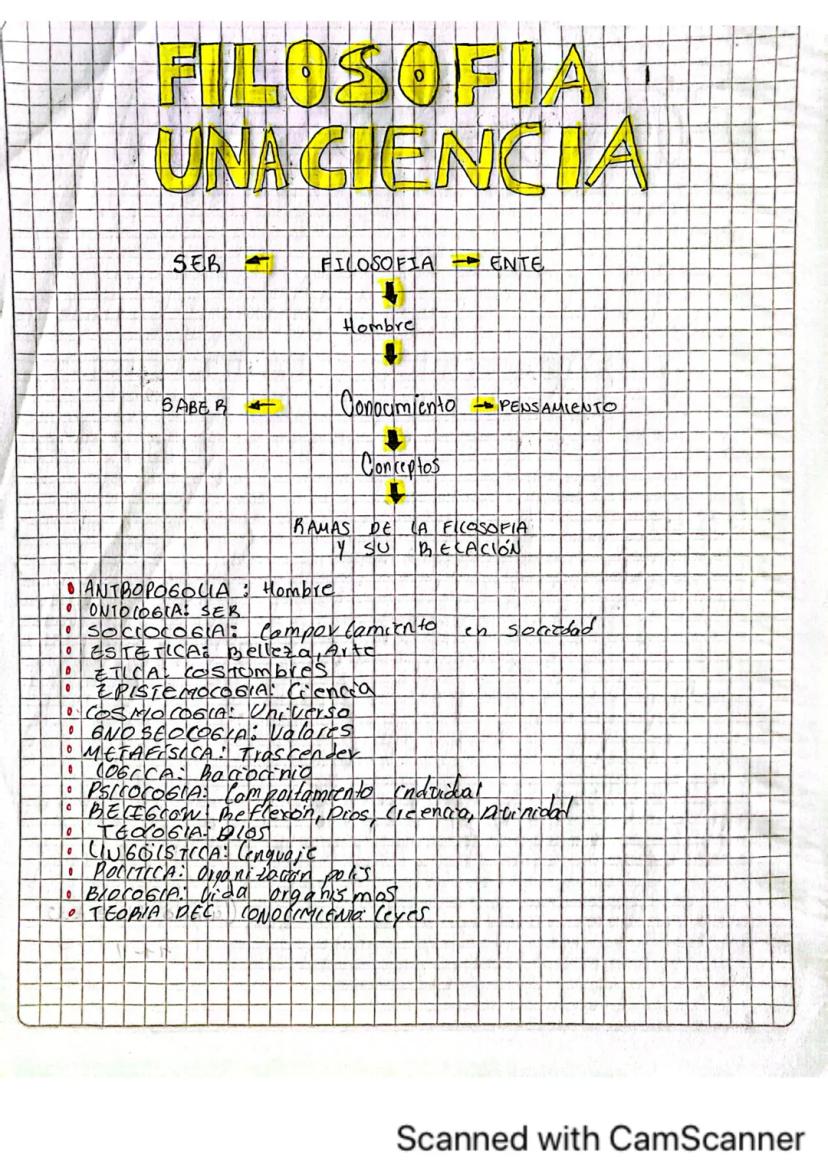 FILOSOFIA
UNA CIENCIA
SER ← FILOSOFIA → ENTE
Hombre
SABER ← Conocimiento → PENSAMIENTO
Conceptos
RAMAS DE LA FILOSOFIA
Y SU RELACIÓN
ANTROPOGOLIA : Hombre
ONTOLOGIA: SER
SOCIOLOGIA: Comportamiento en sociedad
ESTÉTICA: Belleza, Arte
ETICA: COSTUMBRES
EPISTEMOLOGIA: Ciencia
COSMOLOGIA: Universo
GNOSEOLOGIA: Valores
METAFISICA: Trascender
LOGICA: Raciocinio
PSICOLOGIA: Comportamiento individual
RELIGION: Reflexión, Dios, Creencia, Divinidad
TEOLOGIA: DIOS
LINGÜISTICA: Lenguaje
POLITICA: Organización polis
BIOLOGIA: Vida organismos
TEORIA DEL CONOCIMIENTO: Leyes
Scanned with CamScanner